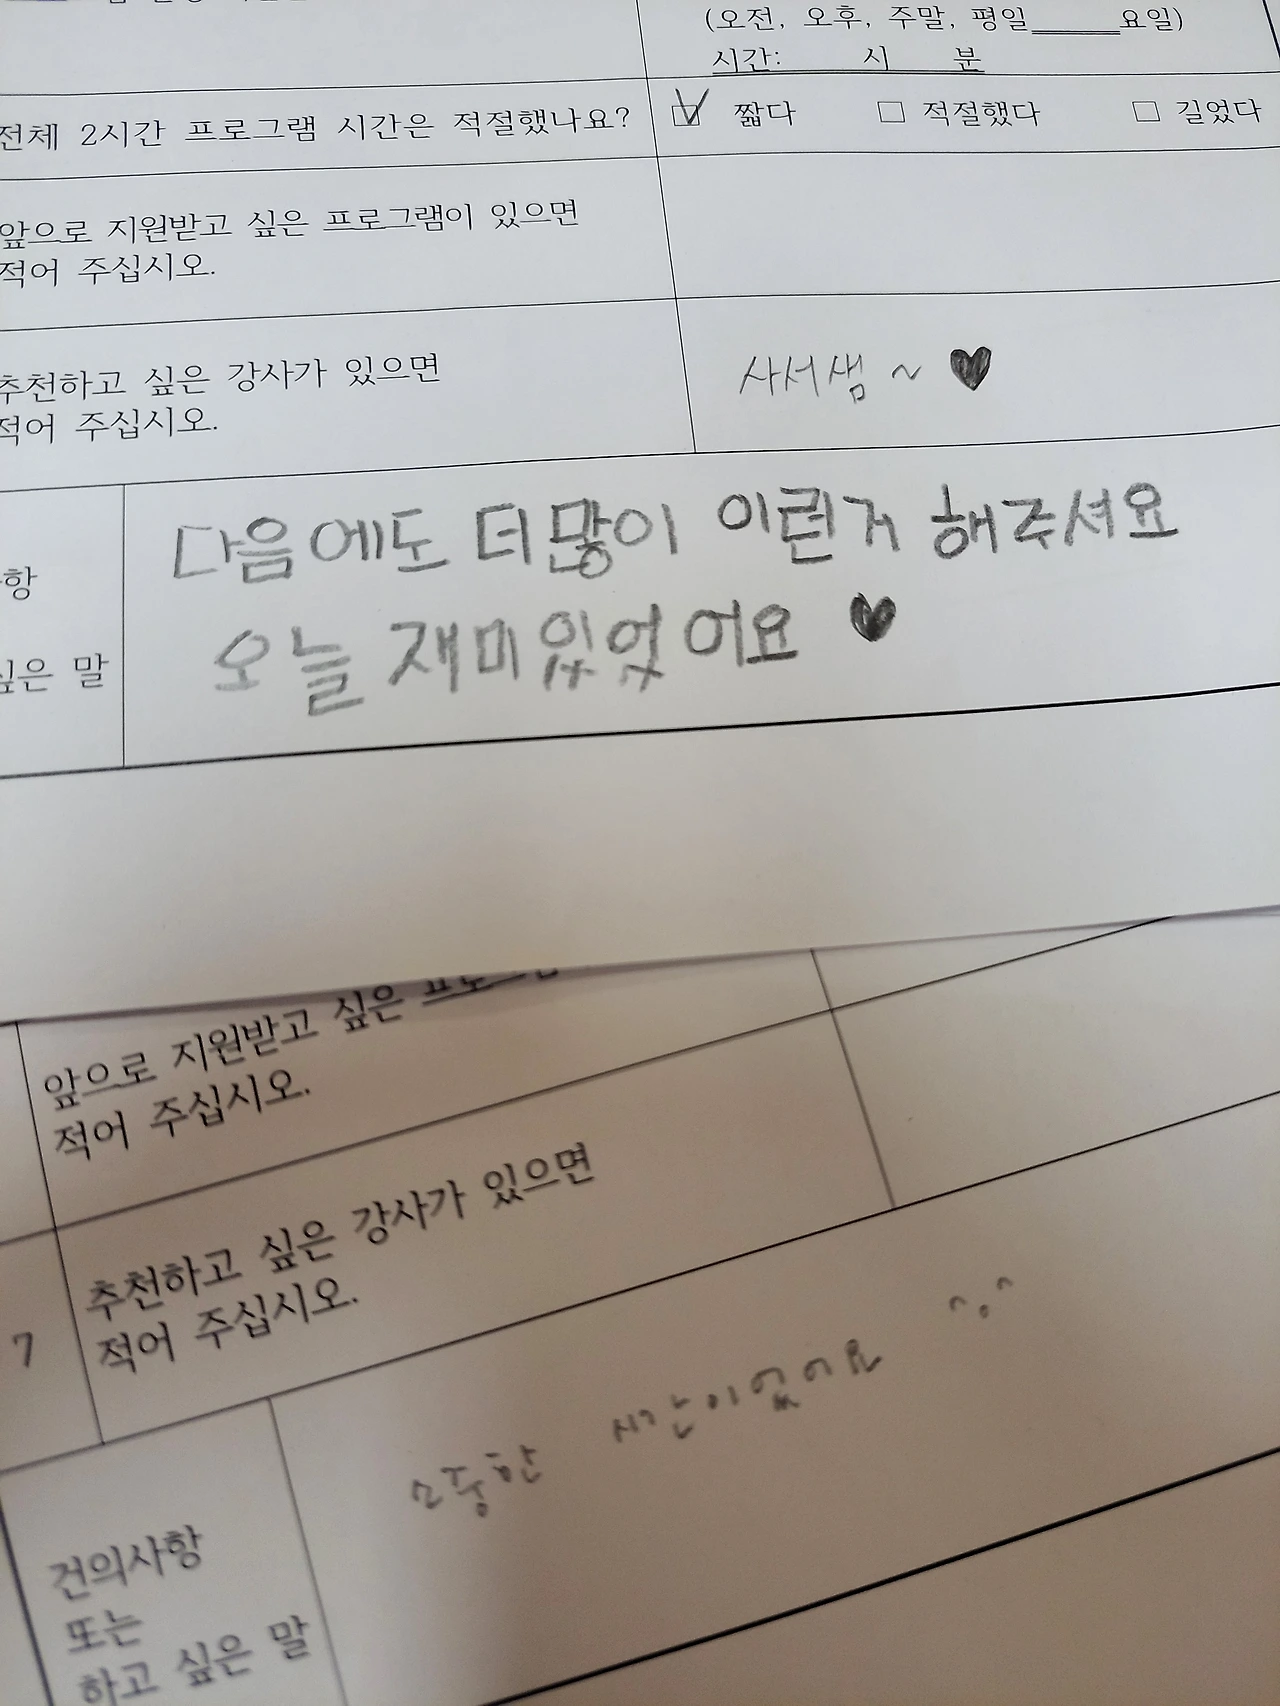 (오전, 오후, 주말, 평일_____요일)
시간: 시 분
전체 2시간 프로그램 시간은 적절했나요? ☑ 짧다 □ 적절했다 □ 길었다
앞으로 지원받고 싶은 프로그램이 있으면
적어 주십시오.
추천하고 싶은 강사가 있으면
적어 주십시오.
사서샘 ~ ♥
항
싶은 말
다음에도 더많이 이런거 해주셔요
오늘 재미있었어요 ♥
앞으로 지원받고 싶은 프로그
적어 주십시오.
7
추천하고 싶은 강사가 있으면
적어 주십시오.
소중한 시간이었어요 ^.^
건의사항
또는
하고 싶은 말